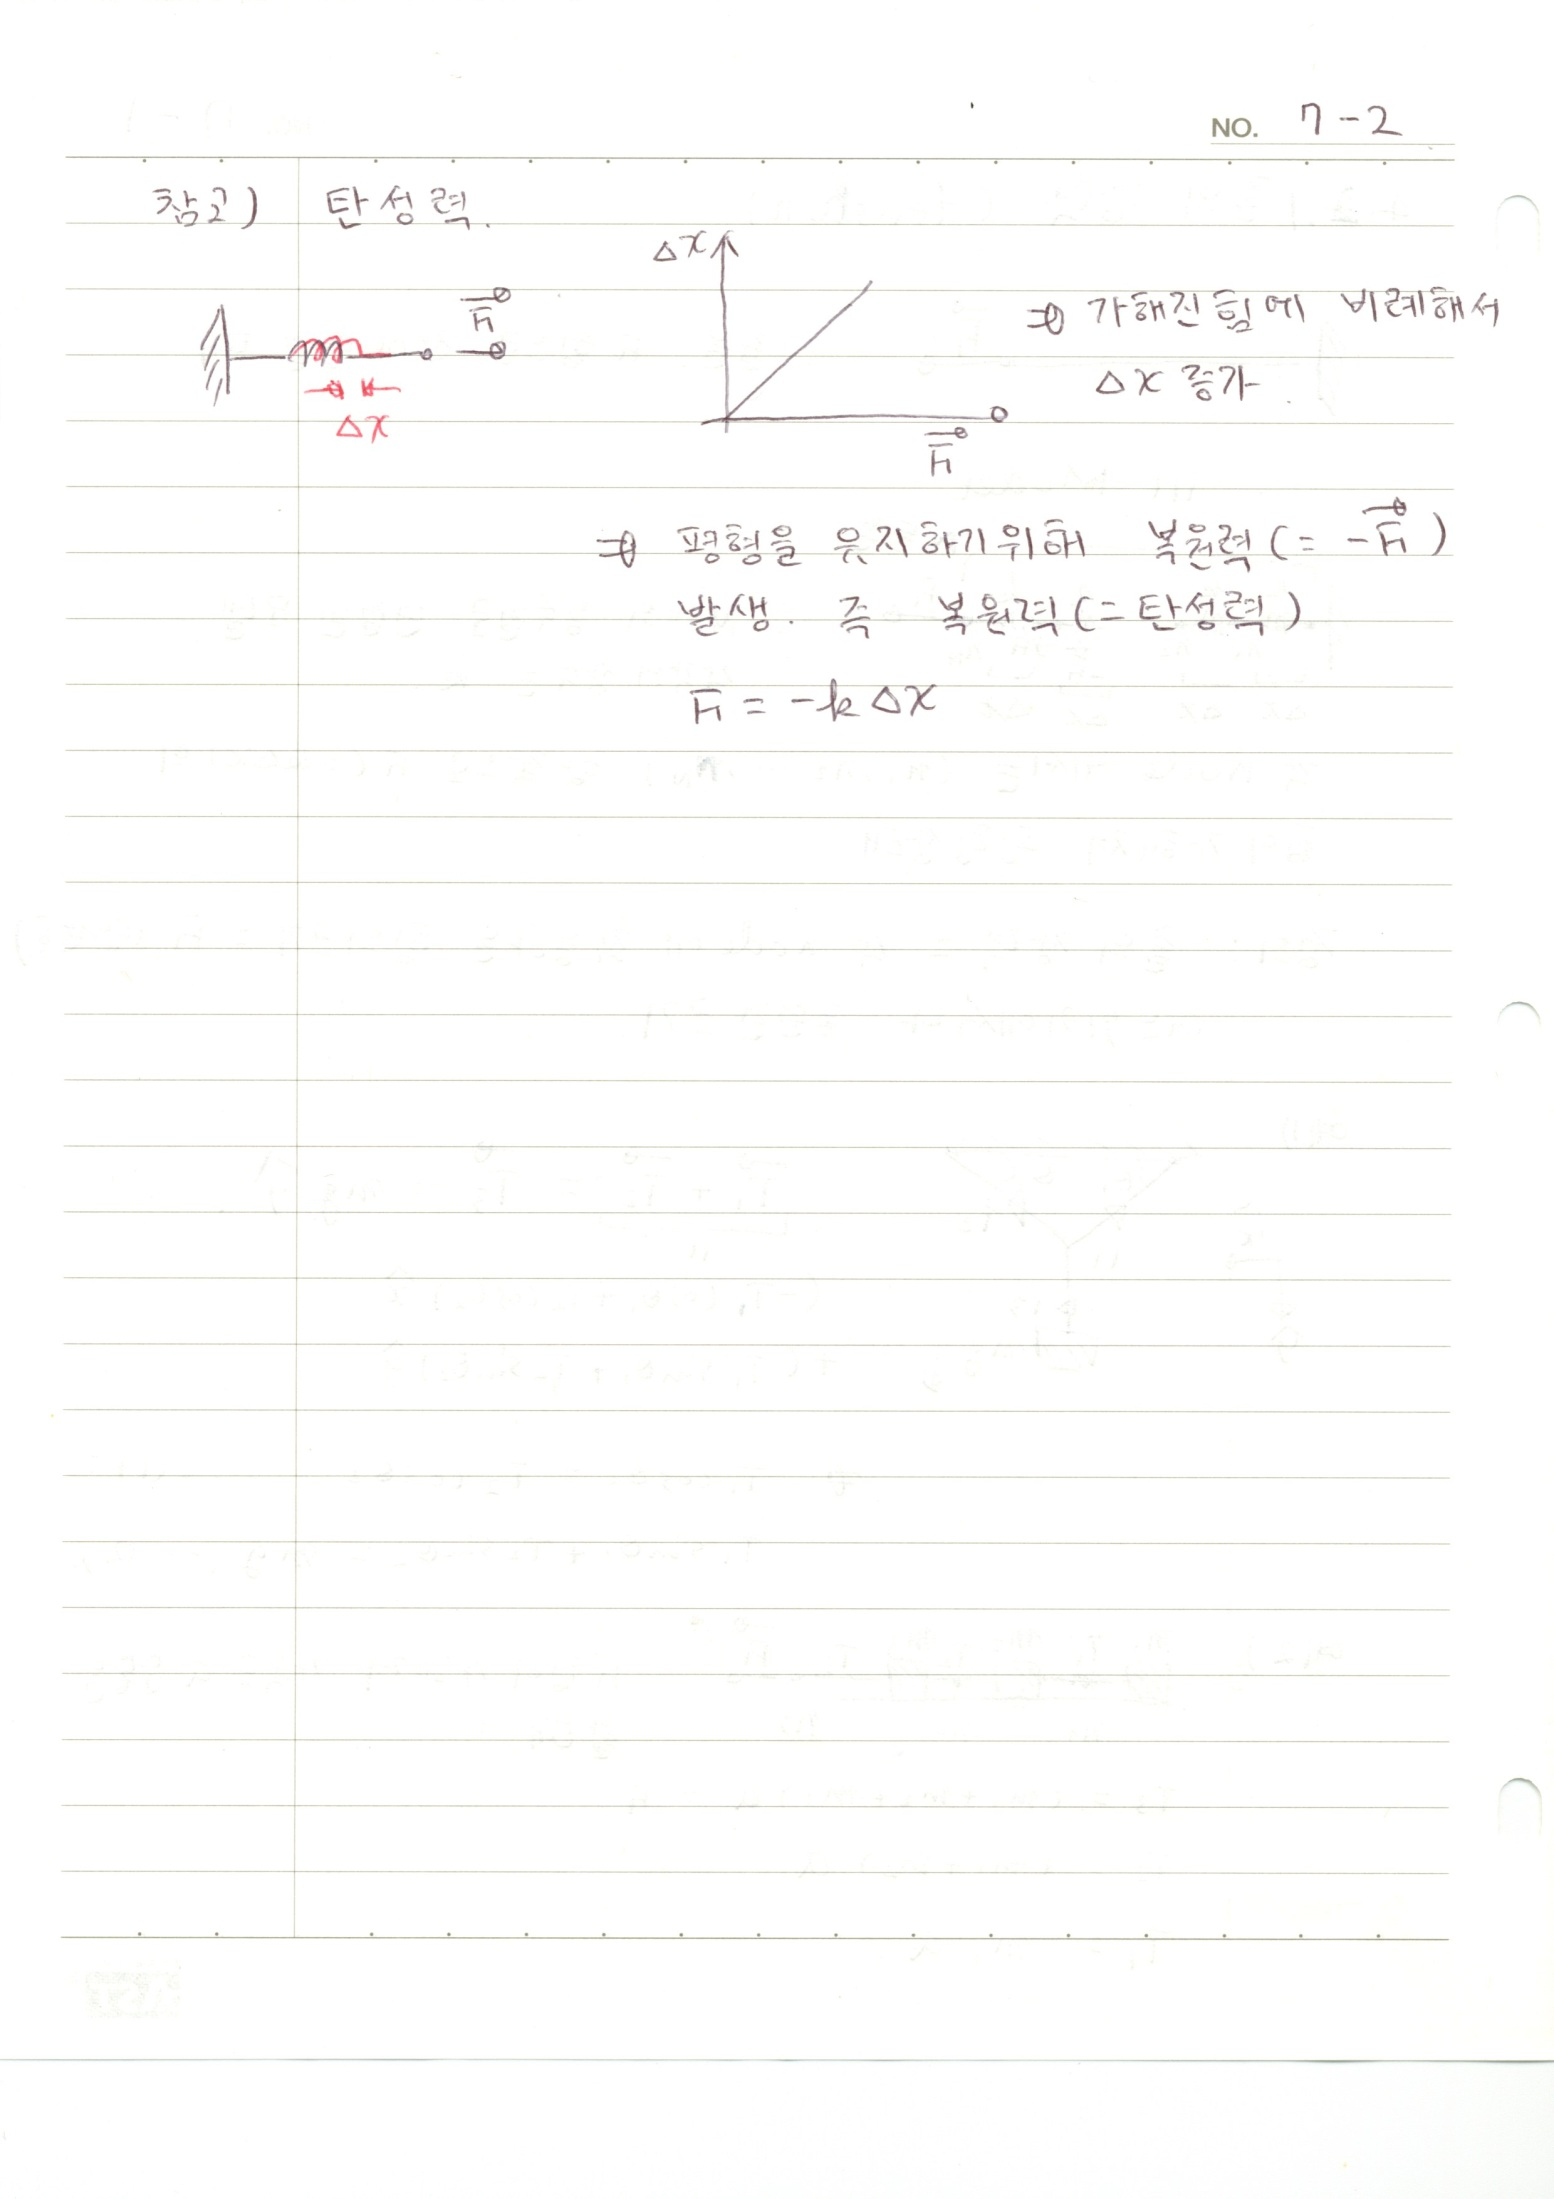 NO. 7-2
참고) 탄성력.
F
Δx
Δx
F
⇒ 가해진 힘에 비례해서
Δx 증가.
⇒ 평형을 유지하기위해 복원력(= -F)
발생. 즉 복원력(=탄성력)
F = -kΔx